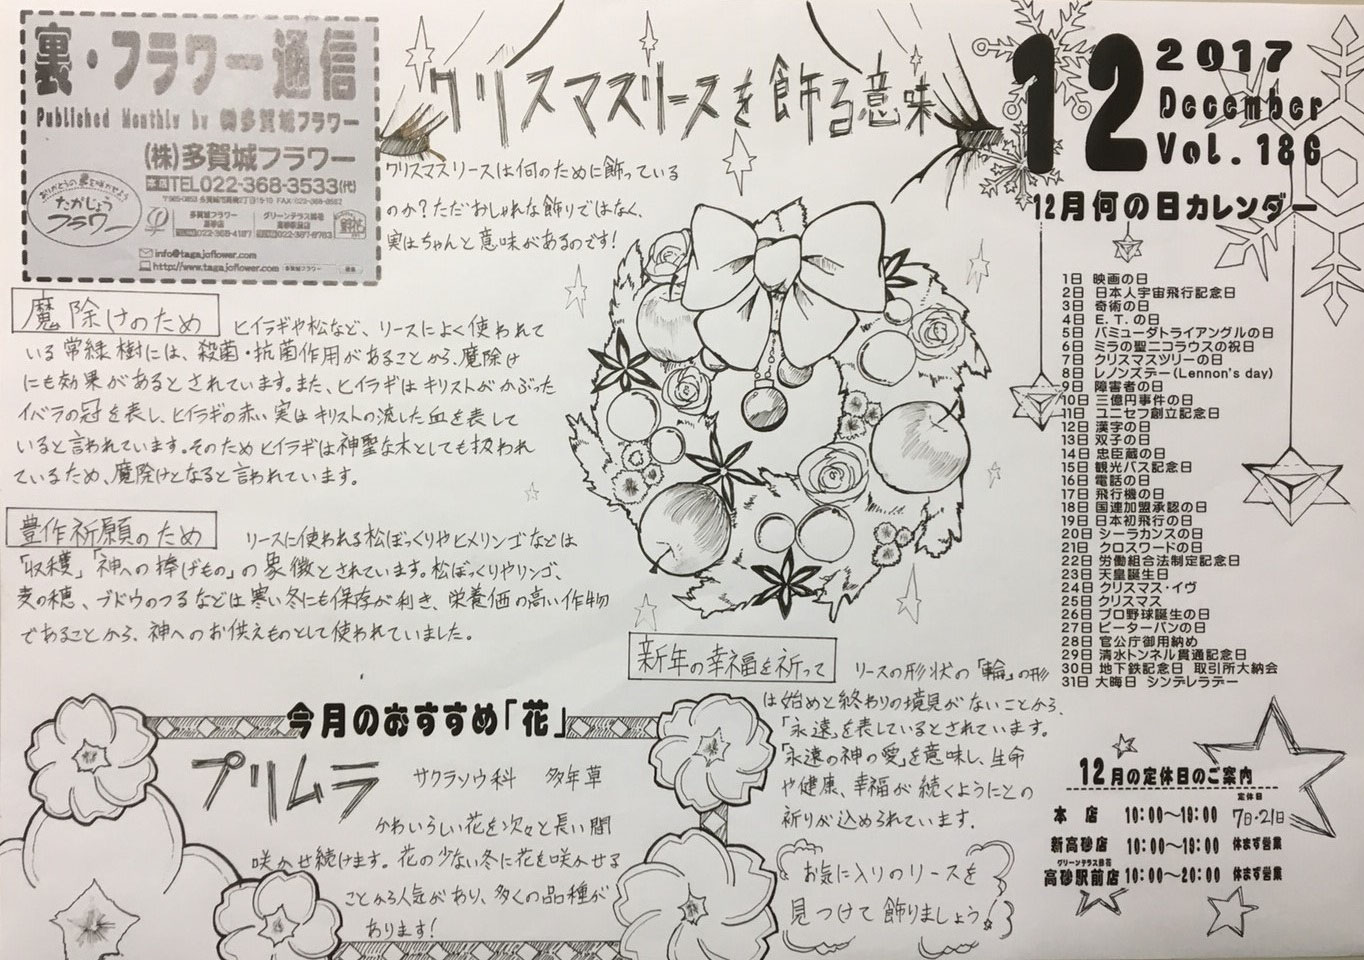 裏・フラワー通信
Published Monthly by ㈱多賀城フラワー
(株)多賀城フラワー
本店TEL022-368-3533(代)
ありがとうの花を咲かせよう
たがじょう
フラワー
多賀城フラワー
高砂店
グリーンテラス鶴花
高砂駅前店
info@tagajoflower.com
http://www.tagajoflower.com
多賀城フラワー
検索
クリスマスリースを飾る意味
クリスマスリースは何のために飾っている
のか?ただおしゃれな飾りではなく、
実はちゃんと意味があるのです!
魔除けのため
ヒイラギや松など、リースによく使われて
いる常緑樹には、殺菌・抗菌作用があることから、魔除け
にも効果があるとされています。また、ヒイラギはキリストがかぶった
イバラの冠を表し、ヒイラギの赤い実はキリストの流した血を表して
いると言われています。そのためヒイラギは神聖な木としても扱われ
ているため、魔除けとなると言われています。
豊作祈願のため
リースに使われる松ぼっくりやヒメリンゴなどは
「収穫」「神への捧げもの」の象徴とされています。松ぼっくりやリンゴ、
麦の穂、ブドウのつるなどは寒い冬にも保存が利き、栄養価の高い作物
であることから、神へのお供えものとして使われていました。
新年の幸福を祈って
リースの形状の「輪」の形
は始めと終わりの境見がないことから、
「永遠」を表しているとされています。
「永遠の神の愛」を意味し、生命
や健康、幸福が続くようにとの
祈りが込められています。
お気に入りのリースを
見つけて飾りましょう♪
今月のおすすめ「花」
プリムラ
サクラソウ科 多年草
かわいらしい花を次々と長い間
咲かせ続けます。花の少ない冬に花を咲かせる
ことから人気があり、多くの品種が
あります!
12
2017
December
Vol.186
12月何の日カレンダー
1日 映画の日
2日 日本人宇宙飛行記念日
3日 奇術の日
4日 E.T.の日
5日 バミューダトライアングルの日
6日 ミラの聖ニコラウスの祝日
7日 クリスマスツリーの日
8日 レノンズデー(Lennon's day)
9日 障害者の日
10日 三億円事件の日
11日 ユニセフ創立記念日
12日 漢字の日
13日 双子の日
14日 忠臣蔵の日
15日 観光バス記念日
16日 電話の日
17日 飛行機の日
18日 国連加盟承認の日
19日 日本初飛行の日
20日 シーラカンスの日
21日 クロスワードの日
22日 労働組合法制定記念日
23日 天皇誕生日
24日 クリスマス・イヴ
25日 クリスマス
26日 プロ野球誕生の日
27日 ピーターパンの日
28日 官公庁御用納め
29日 清水トンネル貫通記念日
30日 地下鉄記念日 取引所大納会
31日 大晦日 シンデレラデー
12月の定休日のご案内
定休日
本 店 10:00〜19:00 7日・21日
新高砂店 10:00〜19:00 休まず営業
グリーンテラス鶴花
高砂駅前店 10:00〜20:00 休まず営業